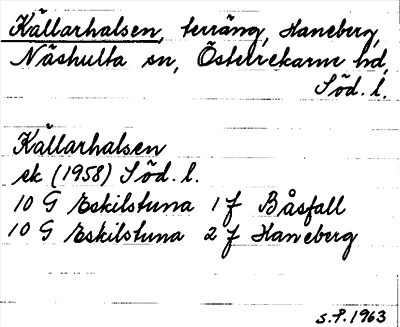 Källarhalsen, terräng, Haneberg,
Näshulta sn, Österrekarne hd,
Söd. l.
Källarhalsen
ek (1958) Söd. l.
10 G Eskilstuna 1 f Båsfall
10 G Eskilstuna 2 f Haneberg
S.P. 1963